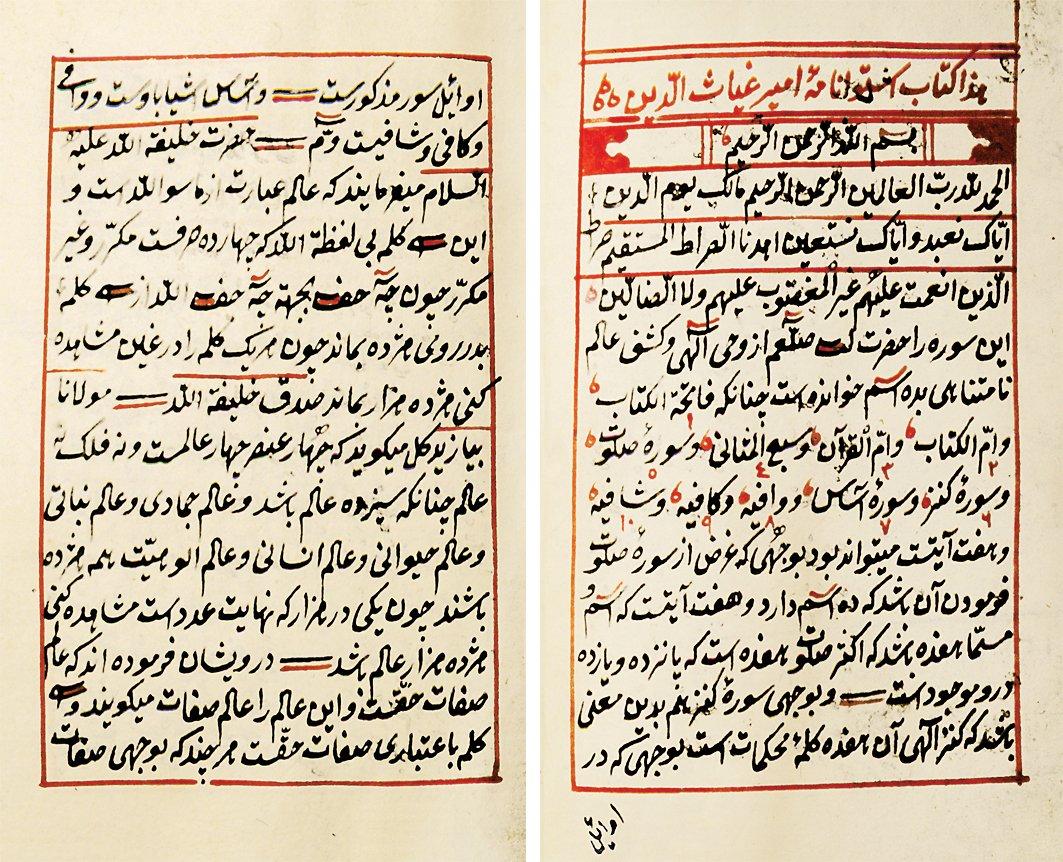 هذا كتاب استوانامهٔ امير غياث الدين
بسم الله الرحمن الرحيم
الحمد لله رب العالمين الرحمن الرحيم مالك يوم الدين
اياك نعبد و اياك نستعين اهدنا الصراط المستقيم صراط
الذين انعمت عليهم غير المغضوب عليهم ولا الضالين
اين سوره را حضرت صلعم از وحى الٓهى و كشف عالم
نامتناهى بده اسم خوانده است چنانكه فاتحة الكتاب
وامّ الكتاب وامّ القرآن وسبع المثانى وسورهٔ صلوت
١
وسورهٔ كنز وسورهٔ اساس ووافيه وكافيه وشافيه
٢ ٣ ٤ ٥
٦ ٧ ٨ ٩ ١٠
وهفت آيتست ميتواند بود بوجهى كه غرض از سورهٔ صلوت
فرمودن آن باشد كه ده اسم دارد وهفت آيتست كه اسم و
مسمّا هفده باشد كه اكثر صلوت هفده است كه پانزده ويازده
درو موجود است وبوجهى سورهٔ كنز هم بدين معنى
باشد كه كنز الٓهى آن هفده كلمهٔ محكمات است بوجهى كه در
اوايل
اوايل سور مذكورست واساس اشيا باوست ووافى
وكافى وشافيست حضرت خليفة الله عليه
السلام ميفرمايند كه عالم عبارت از ما سوالله است و
اين كلمه بى لفظة الله كه چهارده حرفست مكرّر وغير
مكرّر چون بجهة الله از كلمه
بدر برونى هژده بماند چون هر يك كلمه را در عين مشاهده
كنى هژده هزار بماند صدق خليفة الله مولانا
بيازيد كل ميكويد كه چهار عنصر چهار عالمست ونه فلك نه
عالم چنانكه سيزده عالم باشد وعالم جمادى وعالم نباتى
وعالم حيوانى وعالم انسانى وعالم الوهيّت همه هژده
باشند چون يكى در هزار كه نهايت عدد است مشاهده كنى
هژده هزار عالم باشد درويشان فرموده اند كه عالم
صفات حقست واين عالم را عالم صفات ميكويند و
كلمه باعتبارى صفات حقست هر چند كه بوجهى صفات